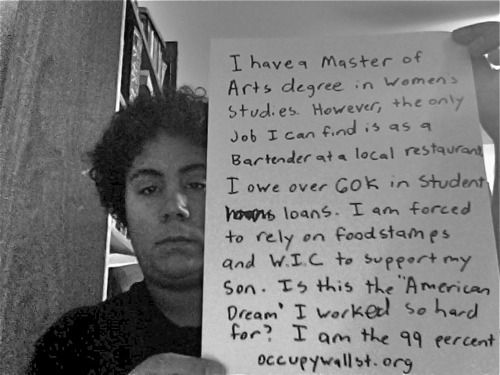 I have a Master of
Arts degree in Women's
Studies. However, the only
Job I can find is as a
Bartender at a local restaurant
I owe over 60K in student
loans. I am forced
to rely on foodstamps
and W.I.C to support my
Son. Is this the "American
Dream" I worked so hard
for? I am the 99 percent
occupywallst.org